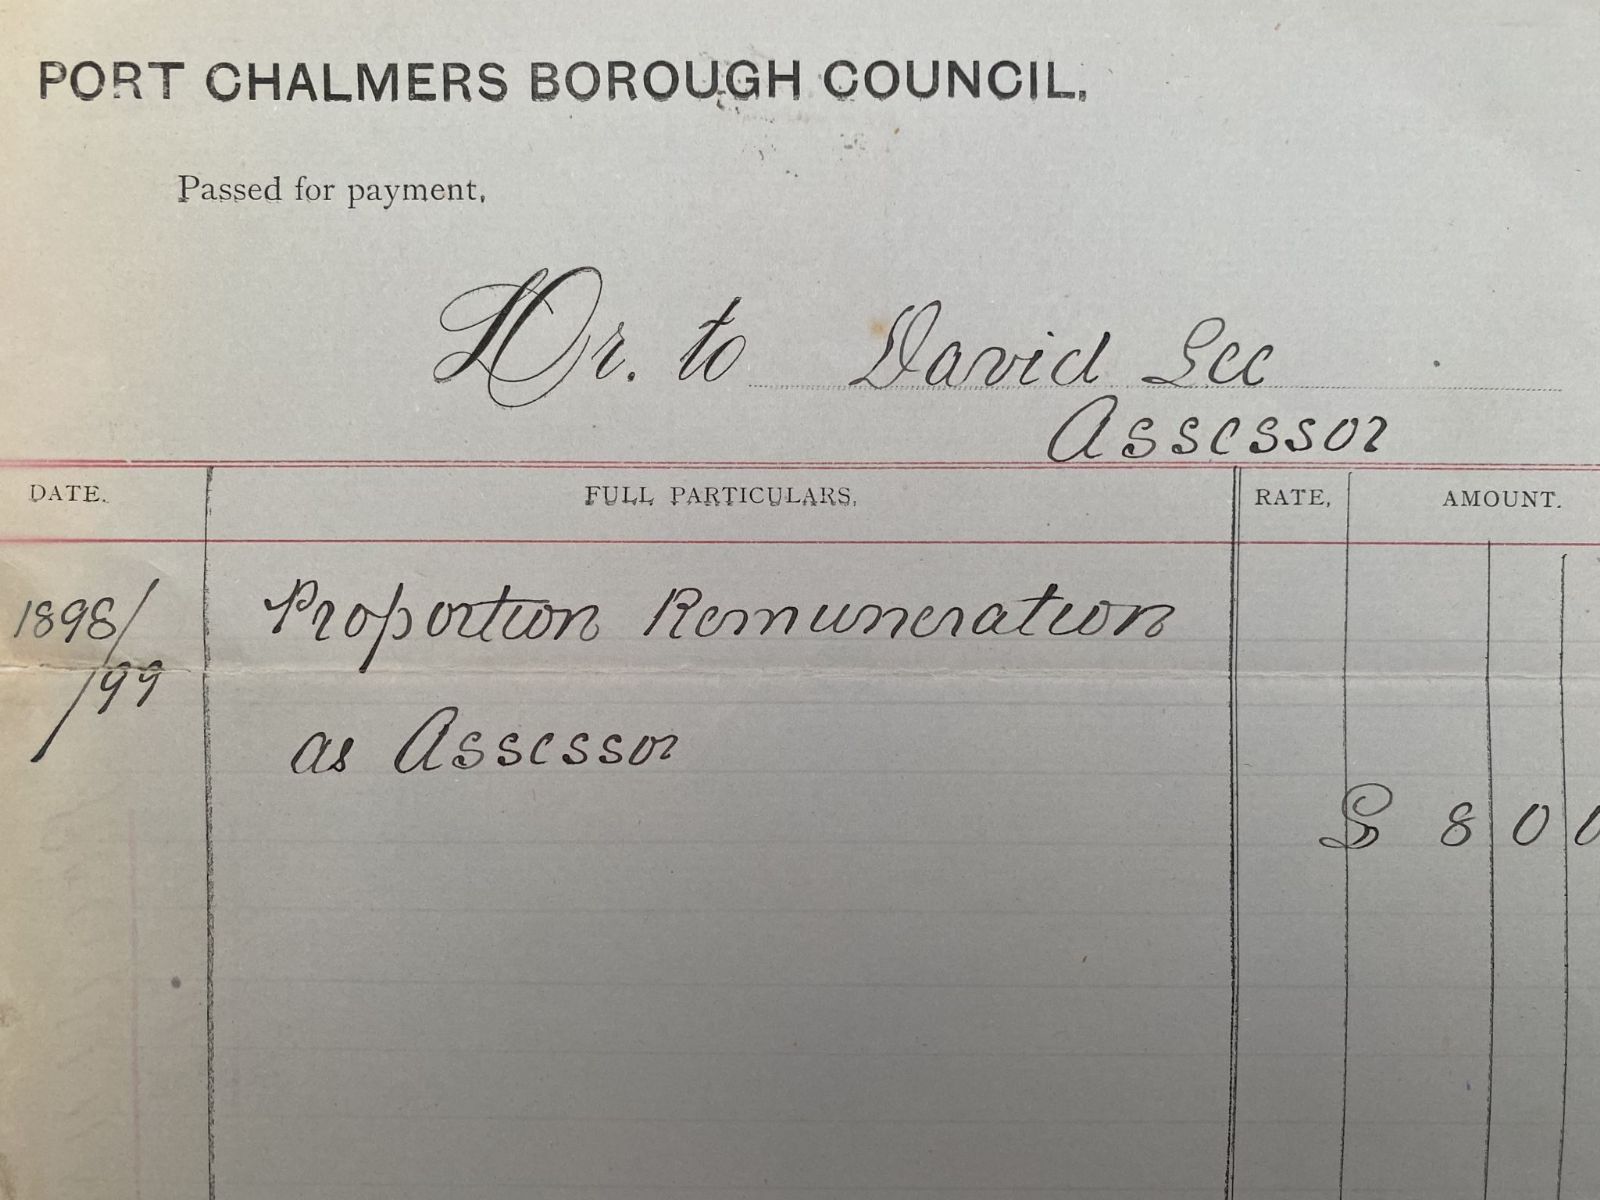 PORT CHALMERS BOROUGH COUNCIL,
Passed for payment,
Dr. to David Lee
Assessor
DATE. FULL PARTICULARS, RATE, AMOUNT.
1898/ Proportion Remuneration
/99
as Assessor
£ 8 0 0